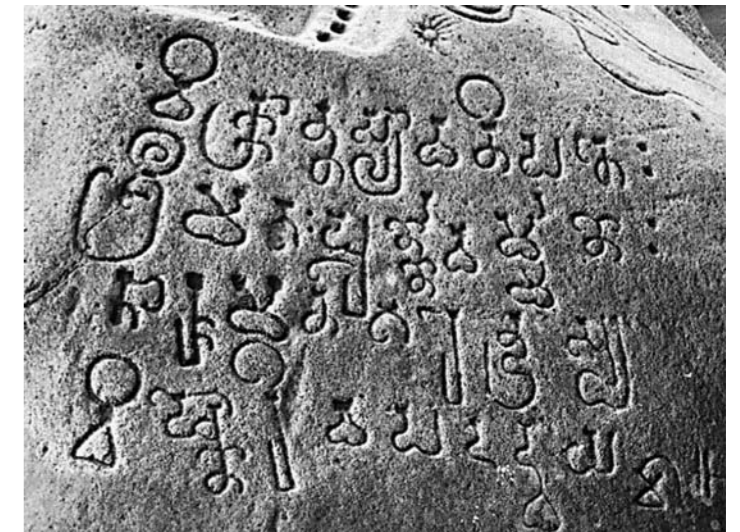 vikkrāntasyāvanipateḥ
śrīmataḥ pūrṇṇavarmmaṇaḥ
tārūmanagarendrasya
viṣṇoriva padadvayam